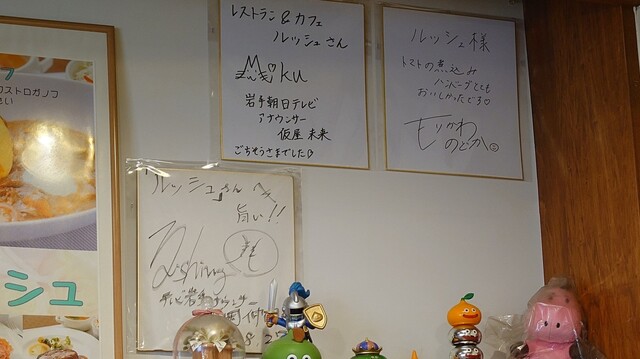 レストラン&カフェ
ルッシュさん
Miku
岩手朝日テレビ
アナウンサー
仮屋 未来
ごちそうさまでした♡
ルッシュ様
トマトの煮込み
ハンバーグとても
おいしかったです♡
もりかわ
のどか
ルッシュさんへ
旨い!!
テレビ岩手アナウンサー
ストロガノフ
さい
シュ